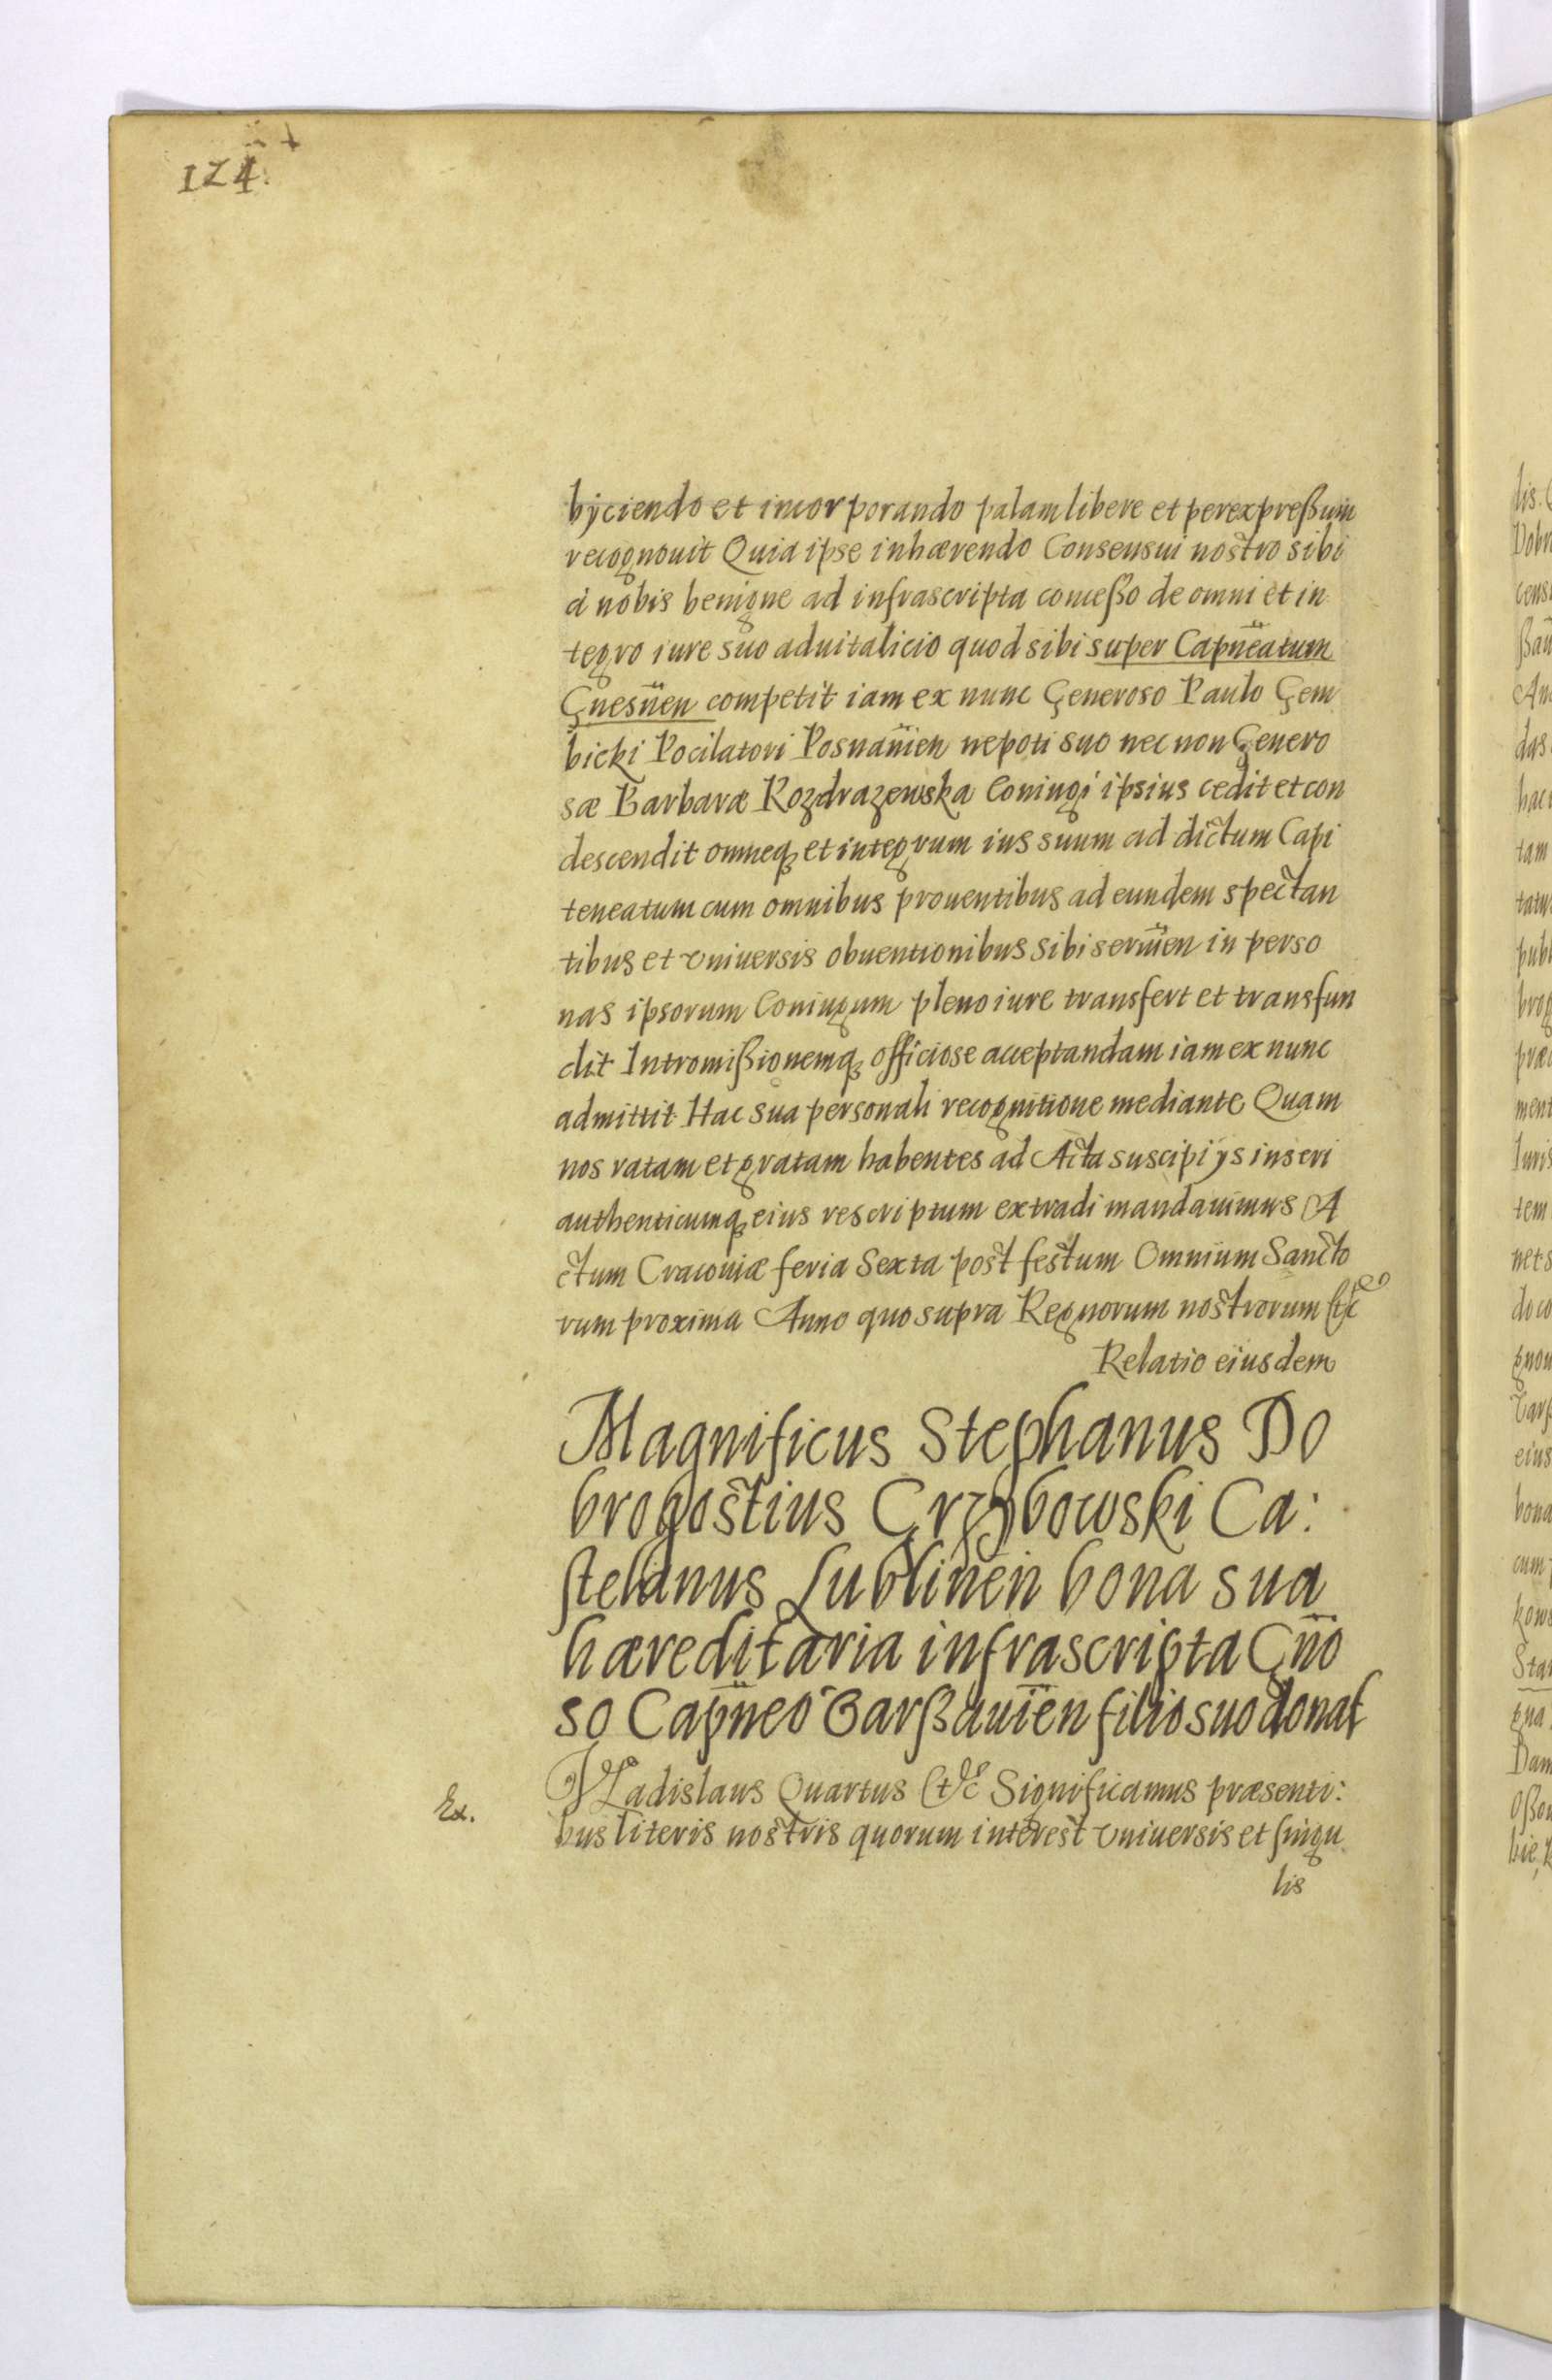 124.
byciendo et incorporando palam libere et per expreßum
recognouit Quia ipse inhærendo Consensui nostro sibi
à nobis benigne ad infrascripta conceßo de omni et in
tegro iure suo aduitalicio quod sibi super Capn̄eatum
Gnesn̄en competit iam ex nunc Generoso Paulo Gem
bicki Pocilatori Posnan̄ien nepoti suo nec non Genero
sæ Barbaræ Rozdrazewska Coniugi ipsius cedit et con
descendit omneq3 et integrum ius suum ad dictum Capi
teneatum cum omnibus prouentibus ad eundem spectan
tibus et vniuersis obuentionibus sibi seruīen in perso
nas ipsorum Coniugum pleno iure transfert et transfun
dit Intromißionemq3 officiose acceptandam iam ex nunc
admittit Hac sua personali recognitione mediante Quam
nos ratam et gratam habentes ad Acta suscipi ijs inseri
authenticumq3 eius rescriptum extradi mandauimus A
ctum Cracouiæ feria Sexta post festum Omnium Sancto
rum proxima Anno quo supra Regnorum nostrorum etc
Relatio eiusdem
Magnificus Stephanus Do
brogostius Grzybowski Ca:
stelanus Lublinēn bona sua
hæreditaria infrascripta Gn̄o
so Capn̄eo Garßauīen filio suo donat
Ex.
Vladislaus Quartus etc Significamus præsenti:
bus literis nostris quorum interest vniuersis et singu
lis